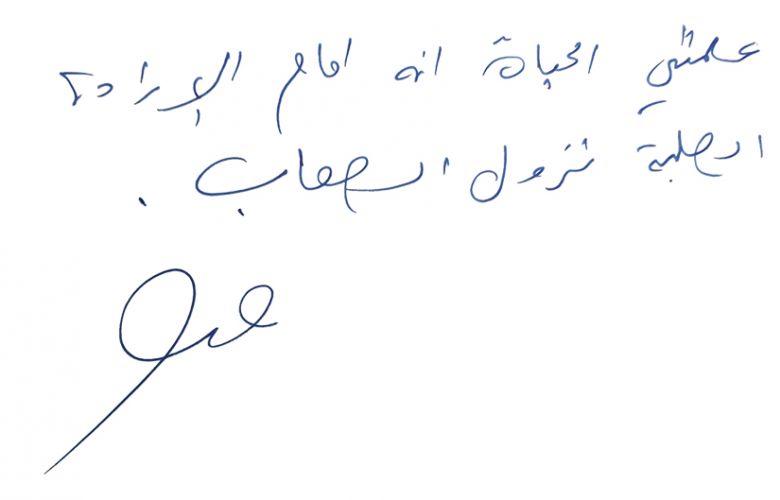 علمتني الحياة انه امام الإرادة
الصلبة تزول الصعاب .